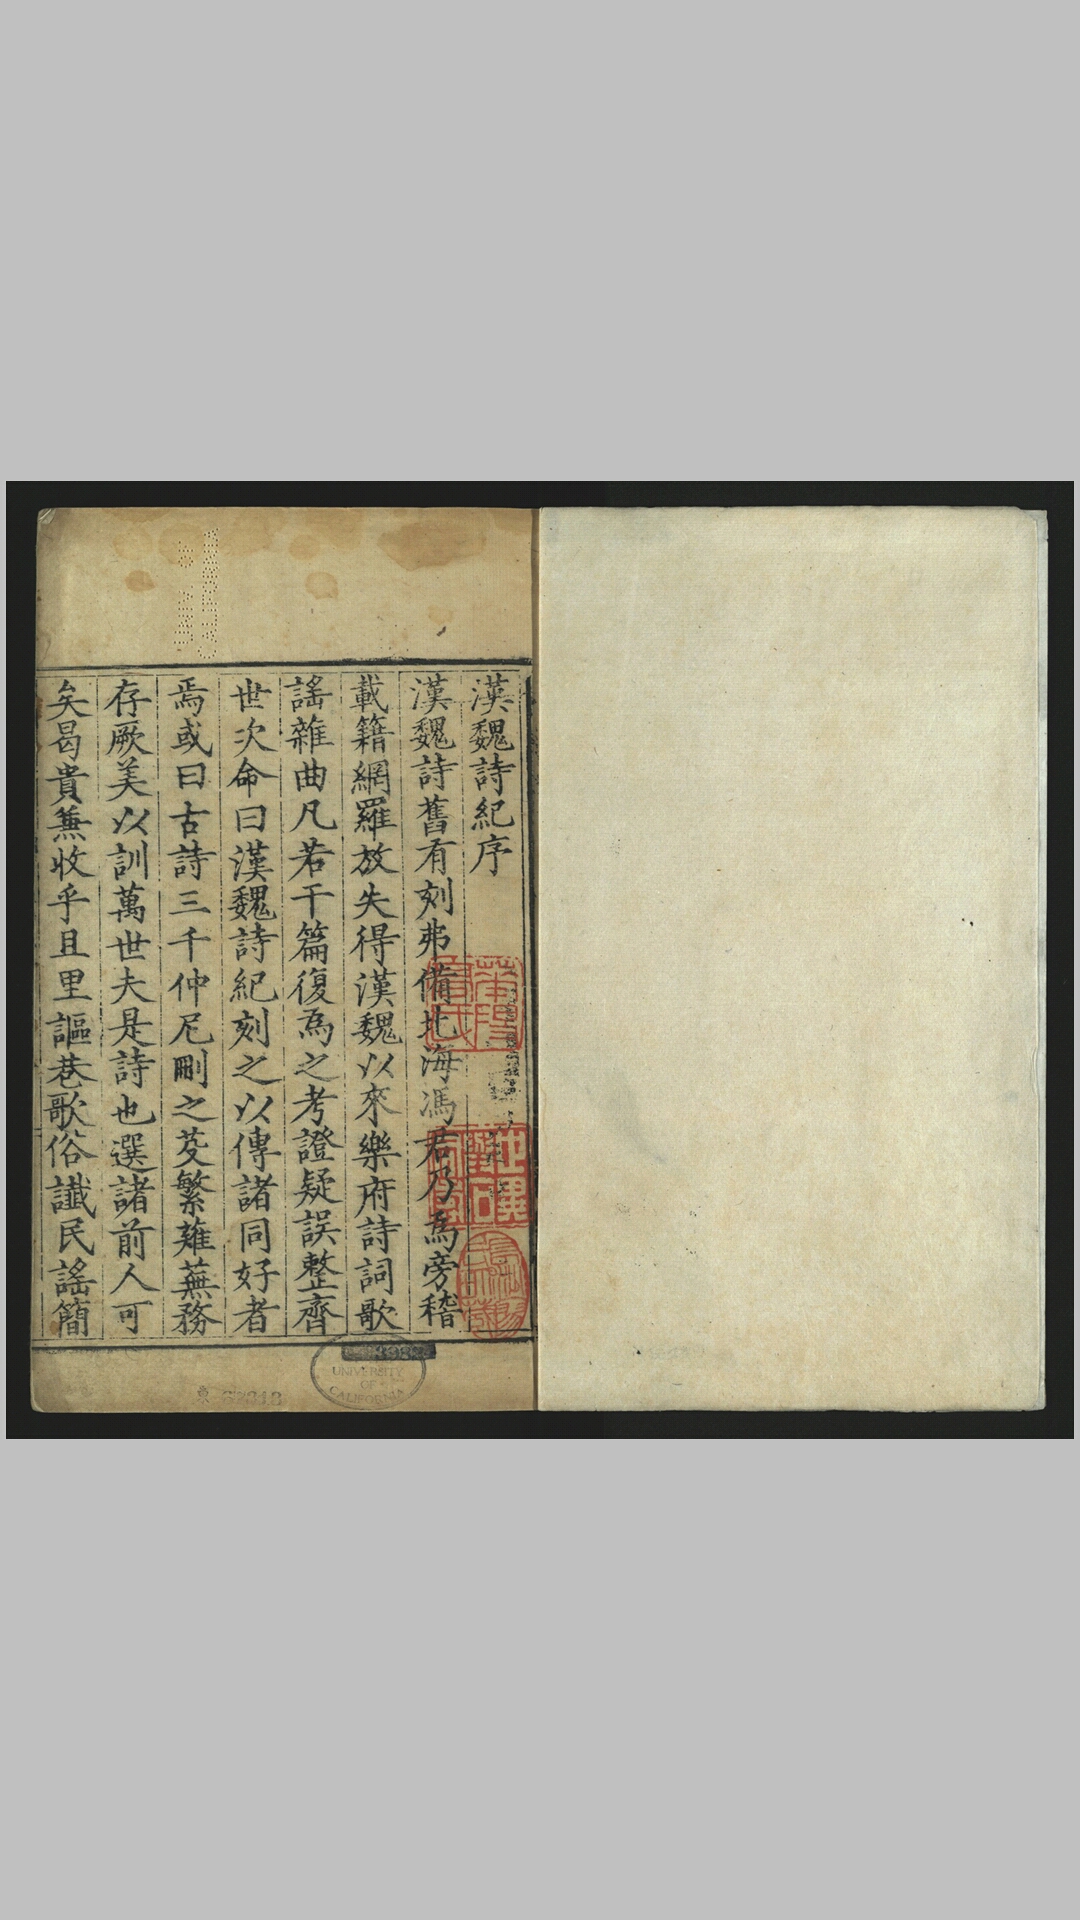 漢魏詩紀序
漢魏詩舊有刻弗備北海馮君乃爲旁稽
載籍網羅放失得漢魏以來樂府詩詞歌
謠雜曲凡若干篇復爲之考證疑誤整齊
世次命曰漢魏詩紀刻之以傳諸同好者
焉或曰古詩三千仲尼刪之芟繁薙蕪務
存厥美以訓萬世夫是詩也選諸前人可
矣曷貴兼收乎且里謳巷歌俗讖民謠簡
UNIVERSITY
OF
CALIFORNIA